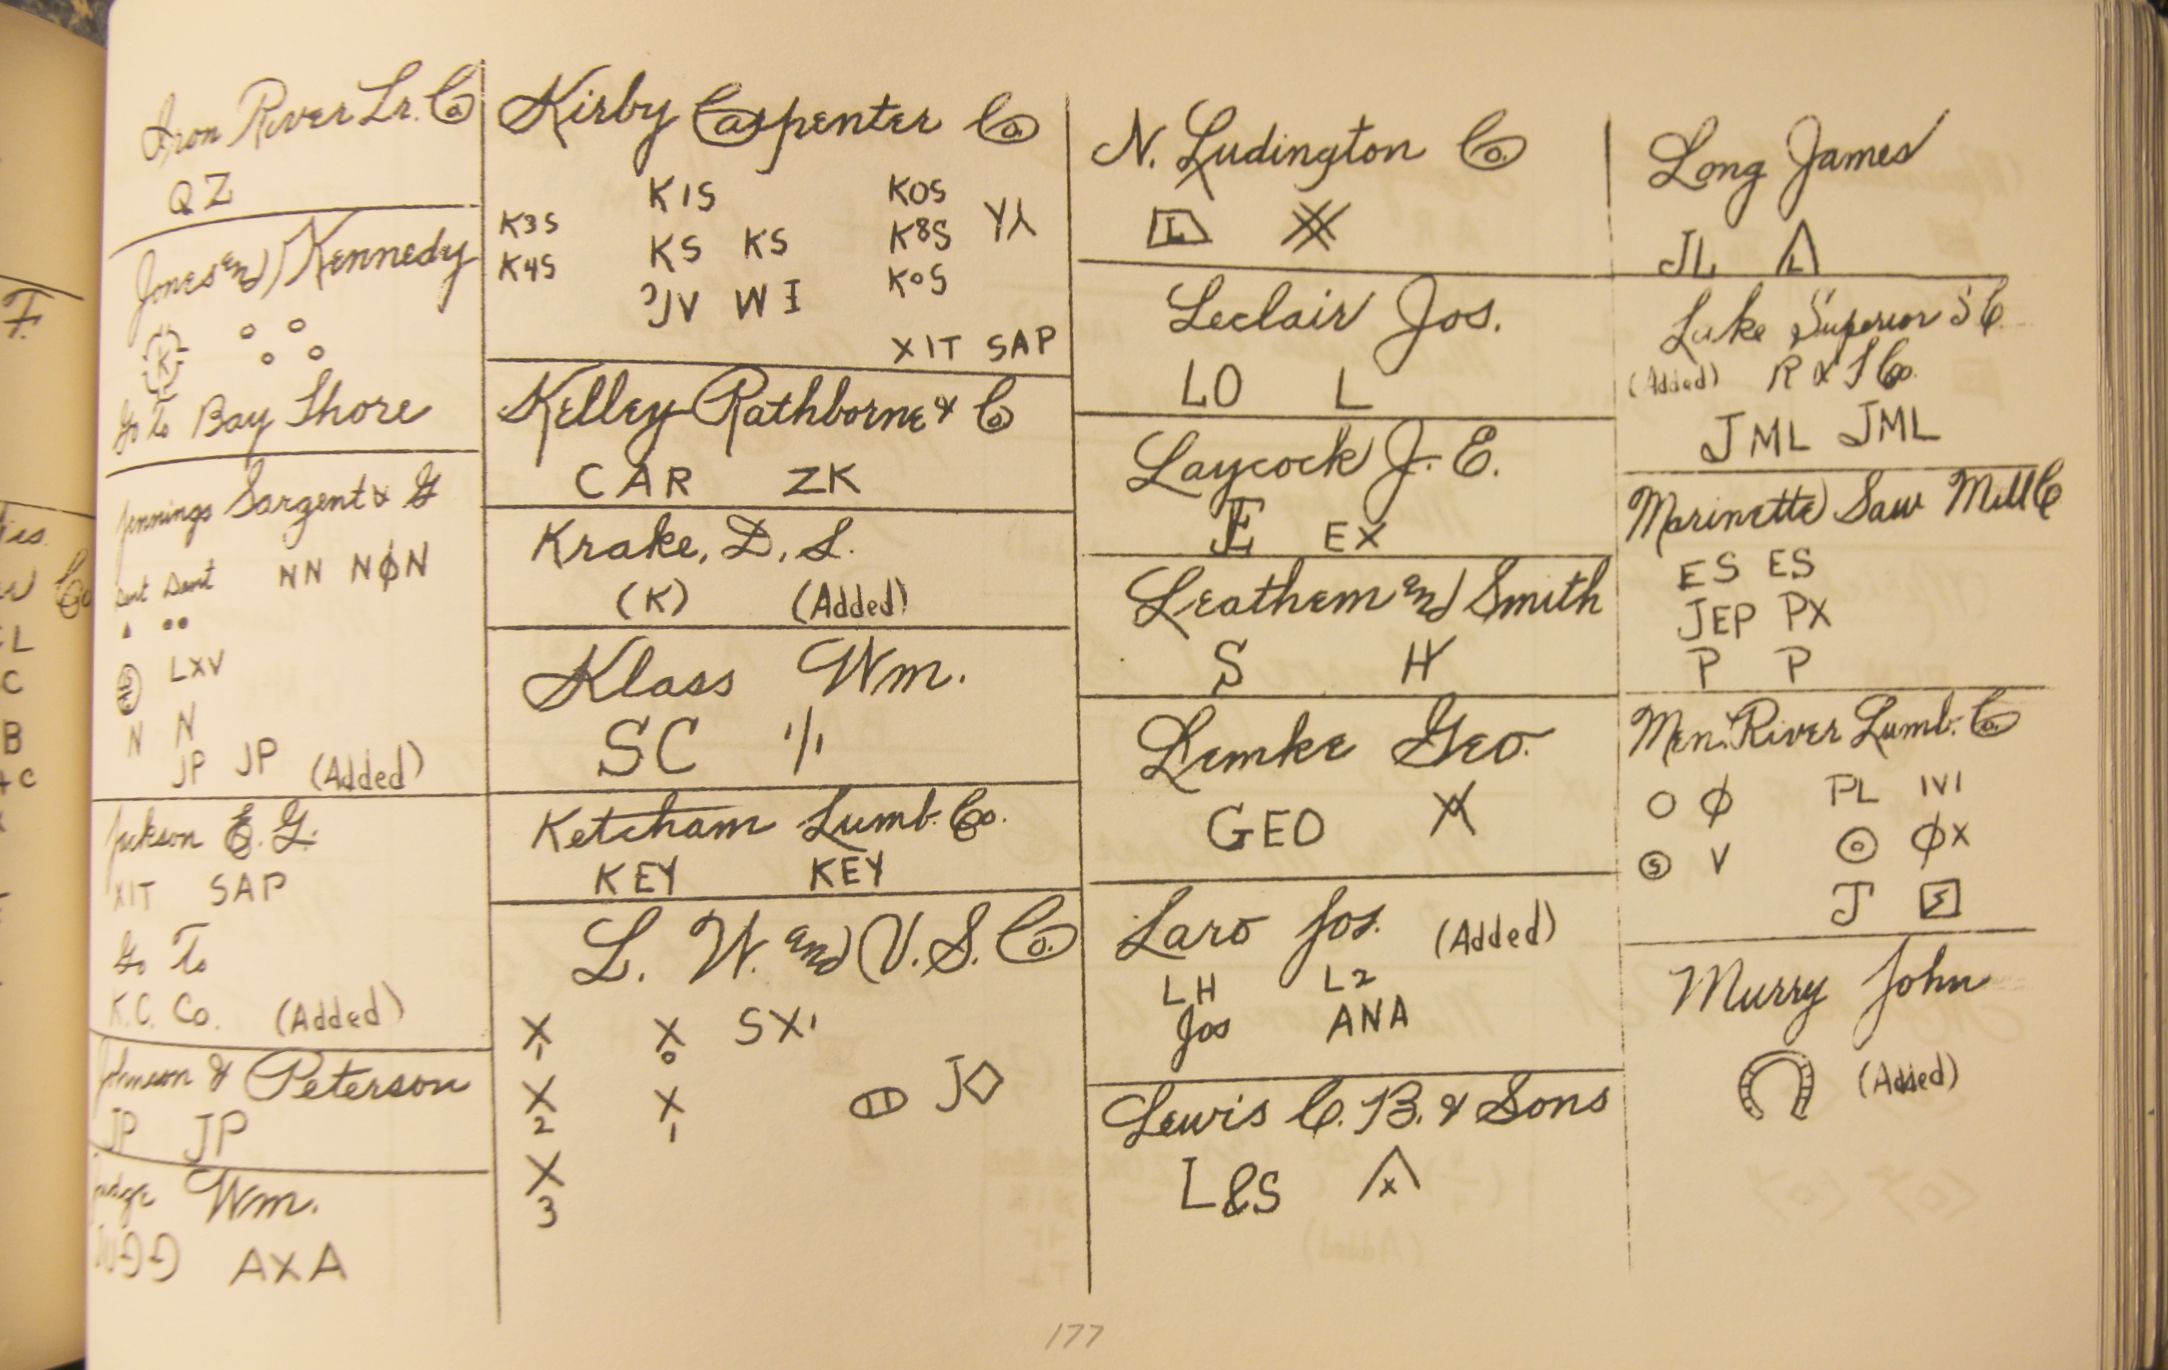 Iron River Lr. Co
QZ
Jones and Kennedy
K
Go to Bay Shore
Jennings Sargent & G
Dent Dent NN NØN
LXV
N N
JP JP (Added)
Jackson E. G.
XIT SAP
Go To
K.C. Co. (Added)
Johnson & Peterson
JP JP
Judge Wm.
AXA
Kirby Carpenter Co
K1S K0S
K3S
KS KS K8S
K4S
JV W I K0S
XIT SAP
Kelley Rathborne & Co
CAR ZK
Krake, D. S.
(K) (Added)
Klass Wm.
SC 1/1
Ketcham Lumb. Co.
KEY KEY
L. W. and V. S. Co.
X 1 X 0 SX1
X 2 X 1 J◇
X 3
N. Ludington Co.
L
Leclair Jos.
LO L
Laycock J. E.
E EX
Leathem and Smith
S H
Lemke Geo.
GEO
Laro Jos. (Added)
LH L2
Jos ANA
Lewis C. B. & Sons
L&S X
Long James
JL L
Lake Superior S Co.
(Added) R & S Co.
JML JML
Marinette Saw Mill Co
ES ES
JEP PX
P P
Men. River Lumb. Co.
O Ø PL IVI
S V ⊙ ØX
J S
Murry John
(Added)
177